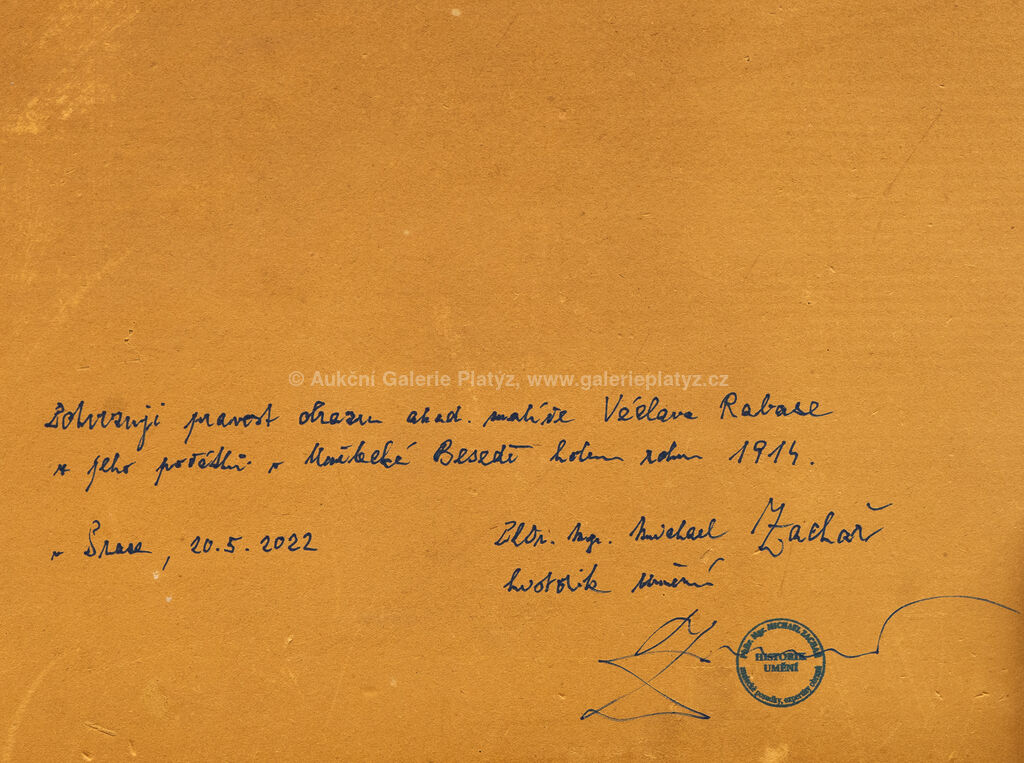 © Aukční Galerie Platýz, www.galerieplatyz.cz
Potvrzuji pravost obrazu akad. malíře Václava Rabase
z jeho počátků v Umělecké Besedě kolem roku 1914.
v Praze, 20.5.2022
PhDr. Mgr. Michael Zachař
historik umění
PhDr. Mgr. MICHAEL ZACHAŘ
HISTORIK
UMĚNÍ
znalecké posudky, expertízy obrazů